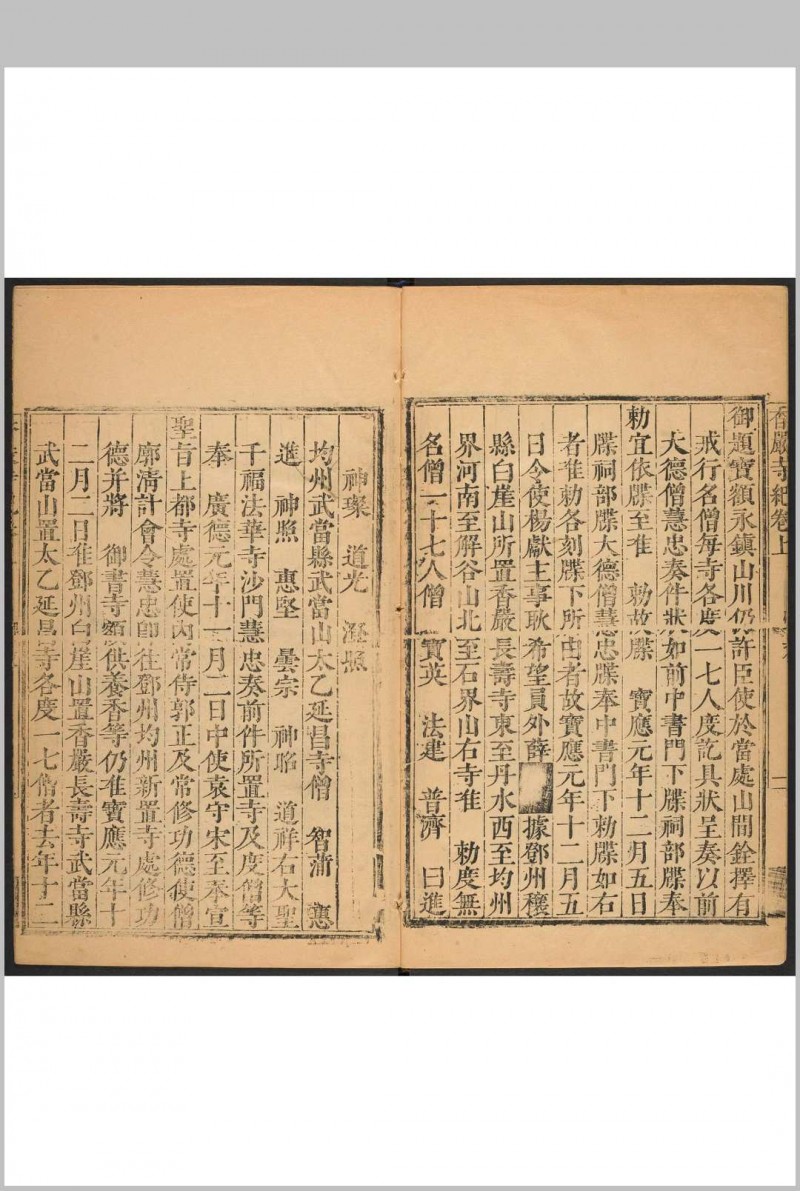 香嚴寺紀卷上
御題寶額永鎮山川仍許臣使於當處山間銓擇有
戒行名僧每寺各度一七人度訖具狀呈奏以前
大德僧慧忠奏件狀如前中書門下牒祠部牒奉
勅宜依牒至准 勅故牒 寶應元年十二月五日
牒祠部牒大德僧慧忠牒奉中書門下勅牒如右
者准勅各刻牒下所由者故寶應元年十二月五
日令使楊獻主事耿希望員外薛 據鄧州穰
縣白崖山所置香嚴長壽寺東至丹水西至均州
界河南至解谷山北至石界山右寺准 勅度無
名僧一十七人僧 寶英 法建 普濟 曰進
神璨 道光 凝照
均州武當縣武當山太乙延昌寺僧 智蒲 惠
進 神照 惠堅 曇宗 神昭 道祥右大聖
千福法華寺沙門慧忠奏前件所置寺及度僧等
奉 廣德元年十一月二日中使袁守宋至奉宣
聖旨上都寺處置使內常侍郭正及常修功德使僧
廓清計會令慧忠卽往鄧州均州新置寺處修功
德并將 御書寺額供養香等仍准寶應元年十
二月二日准鄧州白崖山置香嚴長壽寺武當縣
武當山置太乙延昌寺各度一七僧者去年十二